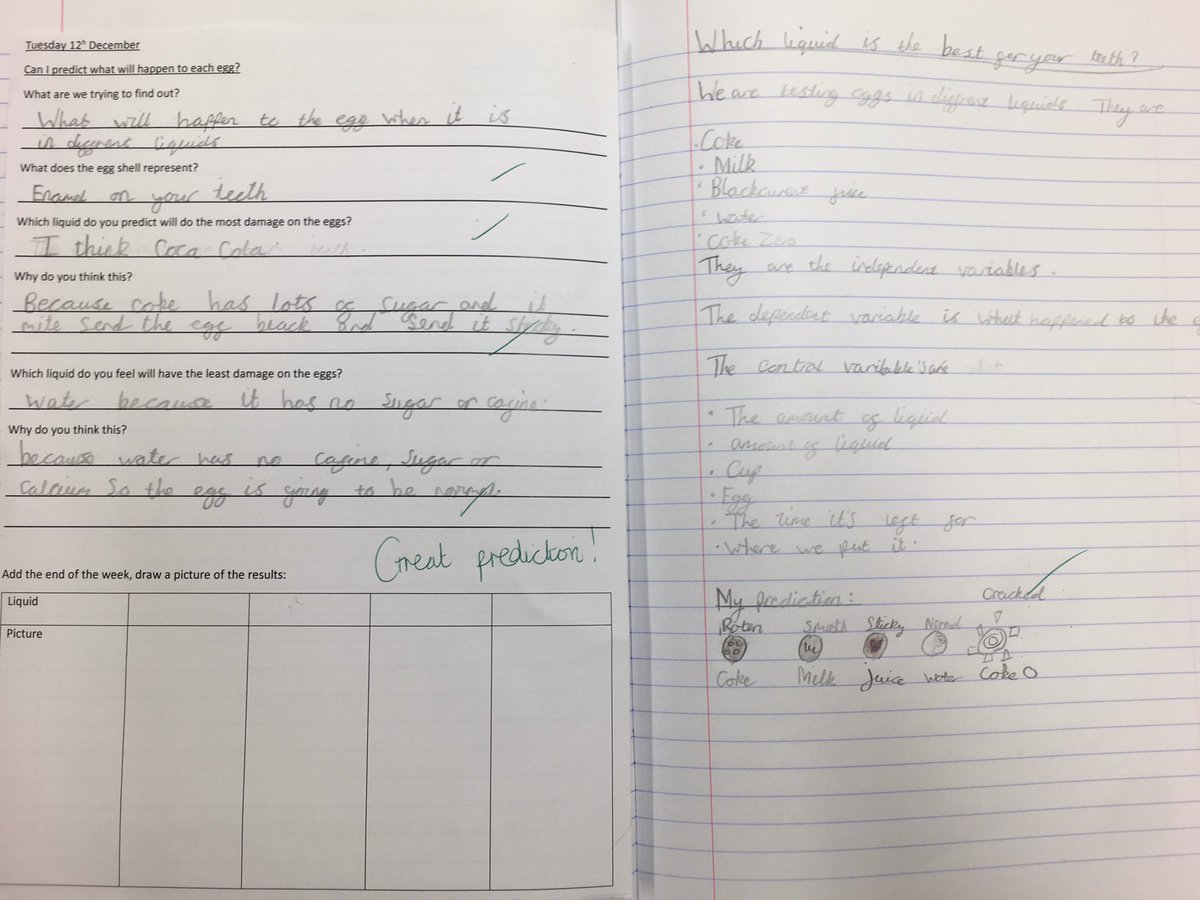 Tuesday 12th December
Can I predict what will happen to each egg?
What are we trying to find out?
What will happen to the egg when it is
in different liquids
What does the egg shell represent?
Enamel on your teeth
Which liquid do you predict will do the most damage on the eggs?
I think Coca Cola
Why do you think this?
Because coke has lots of sugar and it
mite send the egg black and send it sticky.
Which liquid do you feel will have the least damage on the eggs?
Water because it has no sugar or cafine.
Why do you think this?
because water has no cafine, sugar or
Calsium So the egg is going to be normal.
Great prediction!
Add the end of the week, draw a picture of the results:
Liquid
Picture
Which liquid is the best for your teeth?
We are testing eggs in diffrent liquids. They are:
• Coke
• Milk
• Blackcurent juice
• water
• Coke Zero
They are the independent variables.
The dependent variable is what happened to the e
The control varibable's are
• The amount of liquid
• amount of liquid
• Cup
• Egg
• The time it's left for
• Where we put it.
My prediction:
Roten Smooth Sticky Normal Cracked
Coke Milk juice water Coke 0